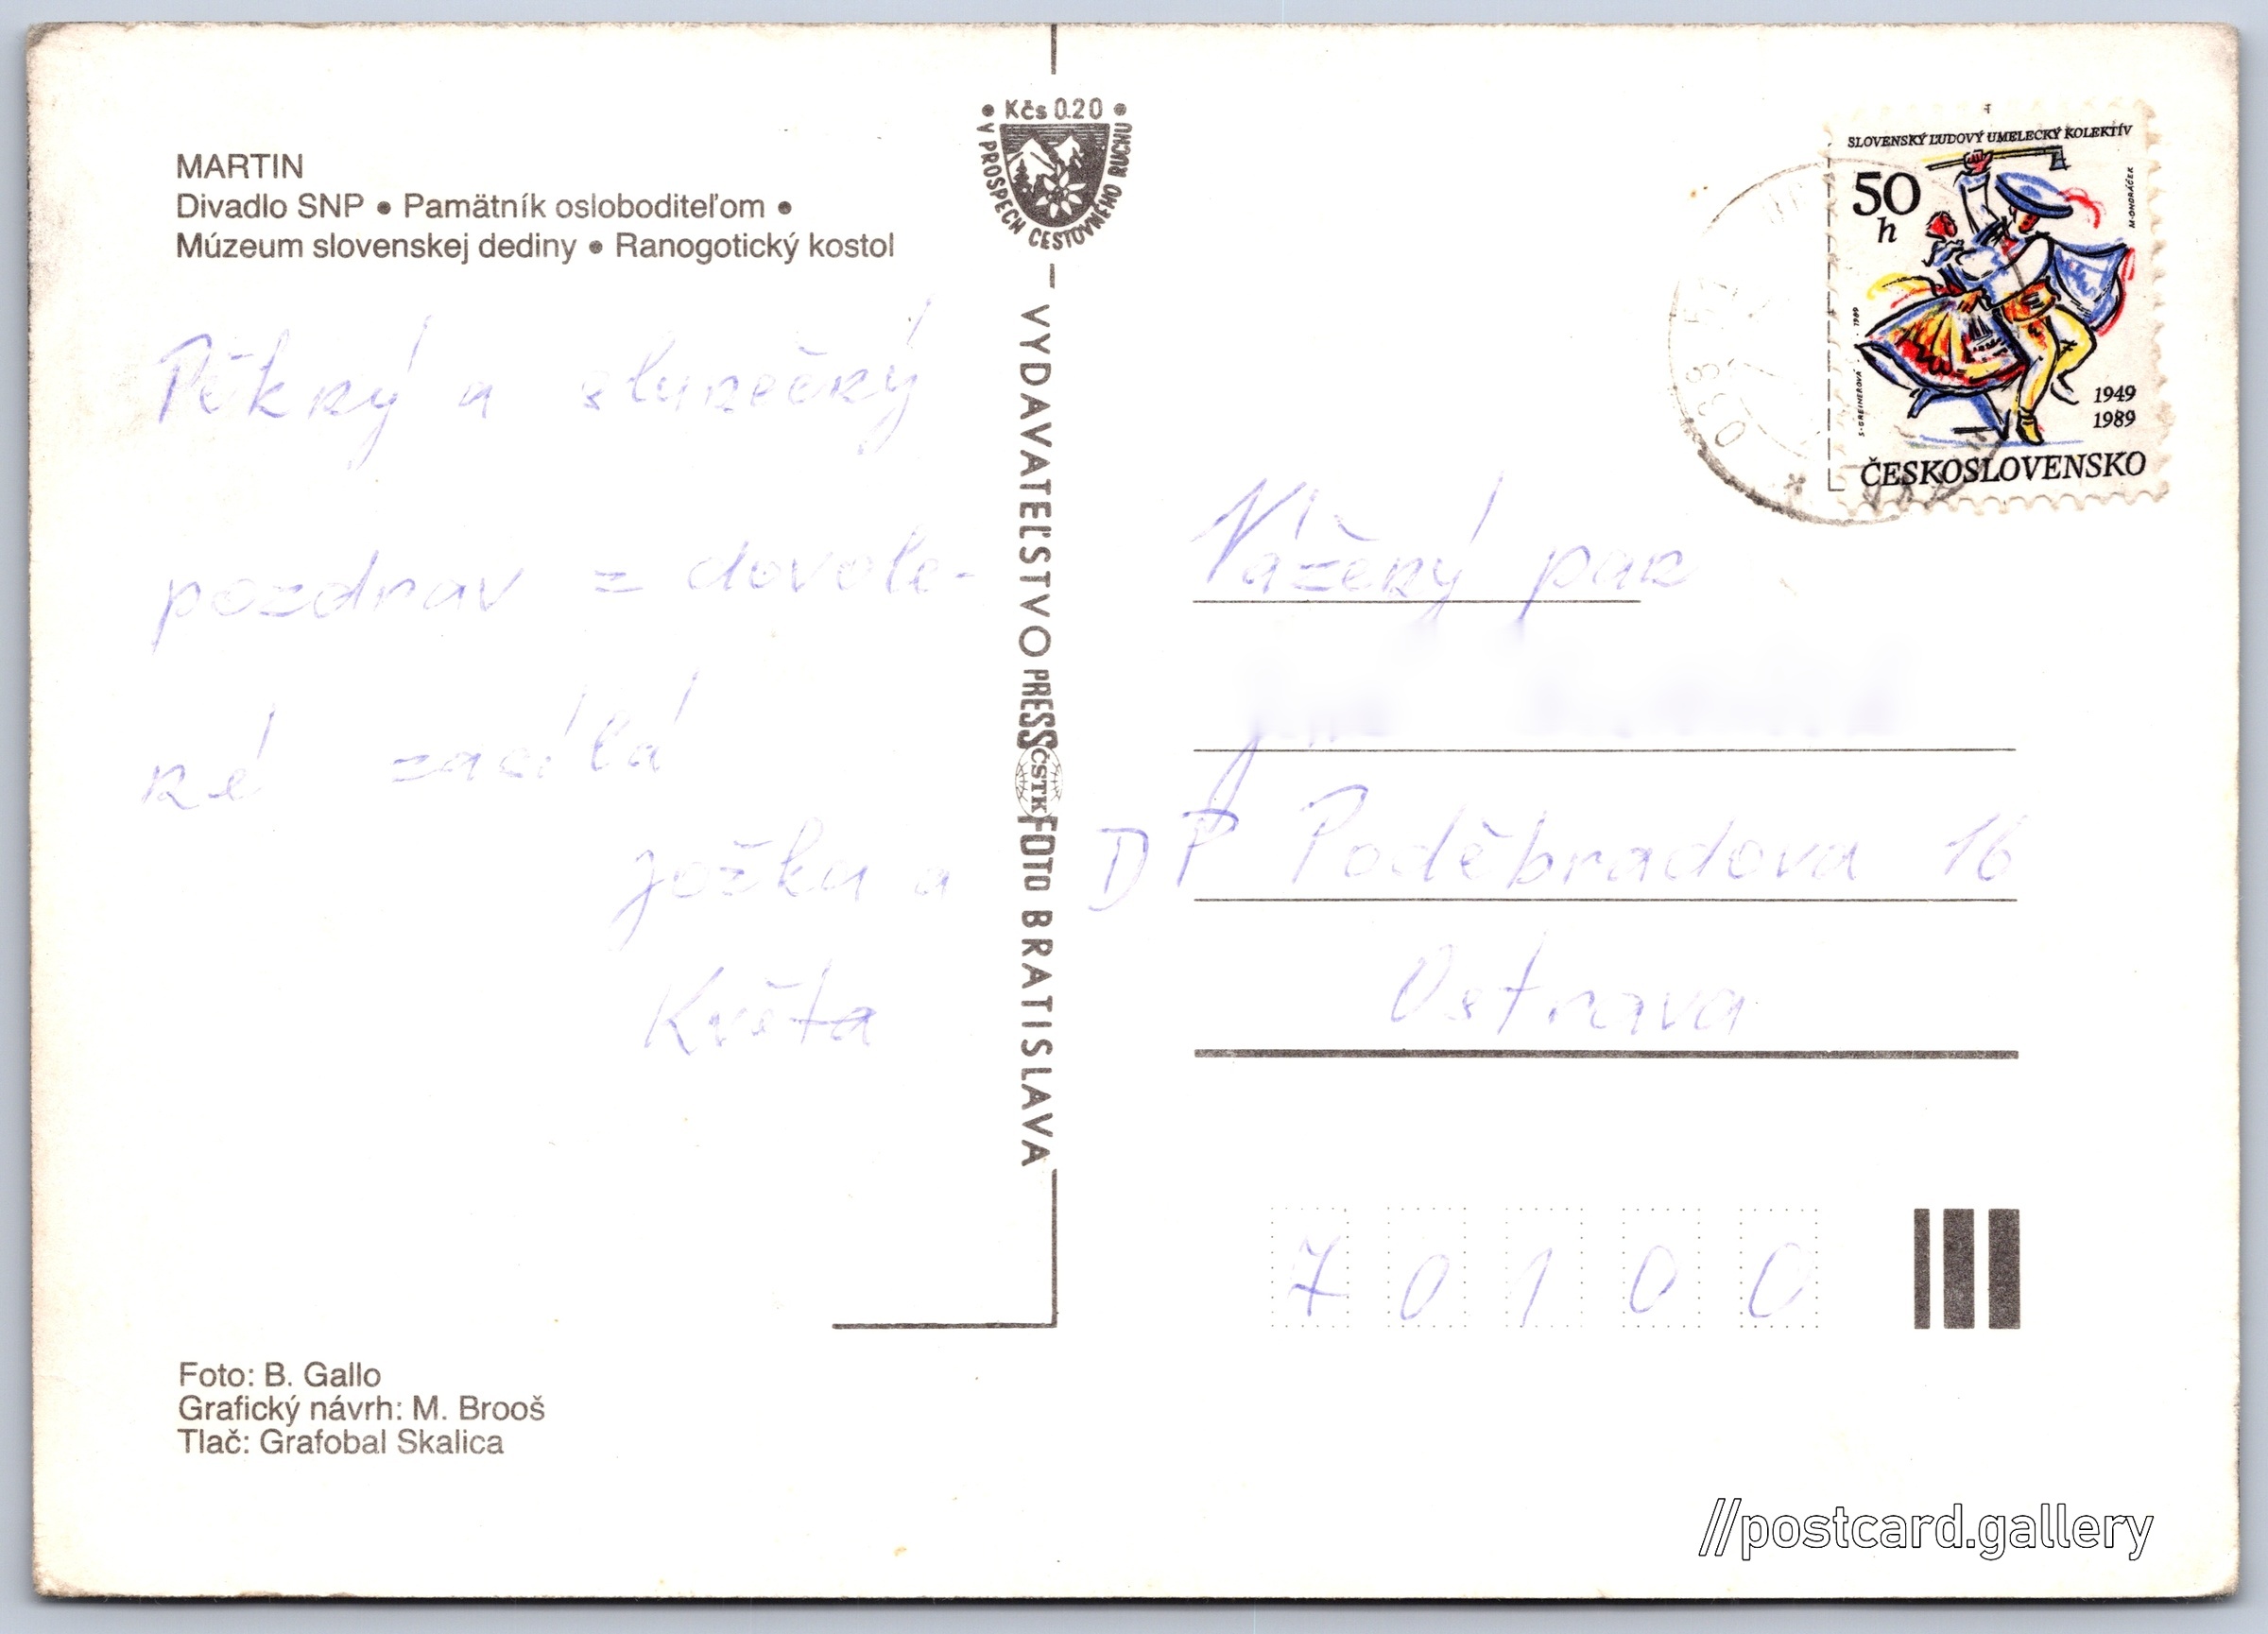 MARTIN
Divadlo SNP • Pamätník osloboditeľom •
Múzeum slovenskej dediny • Ranogotický kostol
Pěkný a slunečný
pozdrav z dovole-
né zasílá
Jožka a
Květa
Foto: B. Gallo
Grafický návrh: M. Brooš
Tlač: Grafobal Skalica
• Kčs 0.20 •
V PROSPECH CESTOVNÉHO RUCHU
VYDAVATEĽSTVO PRESSFOTO BRATISLAVA
ČSTK
SLOVENSKÝ ĽUDOVÝ UMELECKÝ KOLEKTÍV
50
h
M. ONDRÁČEK
1949
1989
ČESKOSLOVENSKO
Vážený pan
DP Poděbradova 16
Ostrava
70100
//postcard.gallery